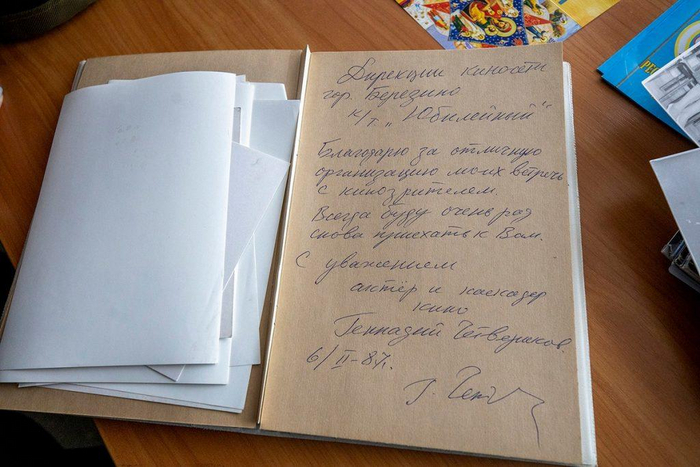 Дирекции киносети
гор. Березино
к/т „Юбилейный"
Благодарю за отличную
организацию моих встреч
с кинозрителем.
Всегда буду очень рад
снова приехать к Вам.
С уважением
актёр и каскадёр
кино
Геннадий Четвериков.
6/II-87г.